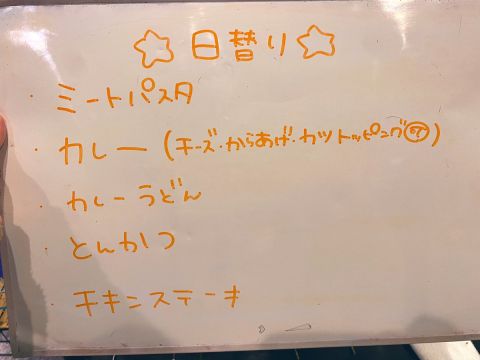 ☆日替り☆
・ミートパスタ
・カレー(チーズ・からあげ・カツトッピング可)
・カレーうどん
・とんかつ
・チキンステーキ